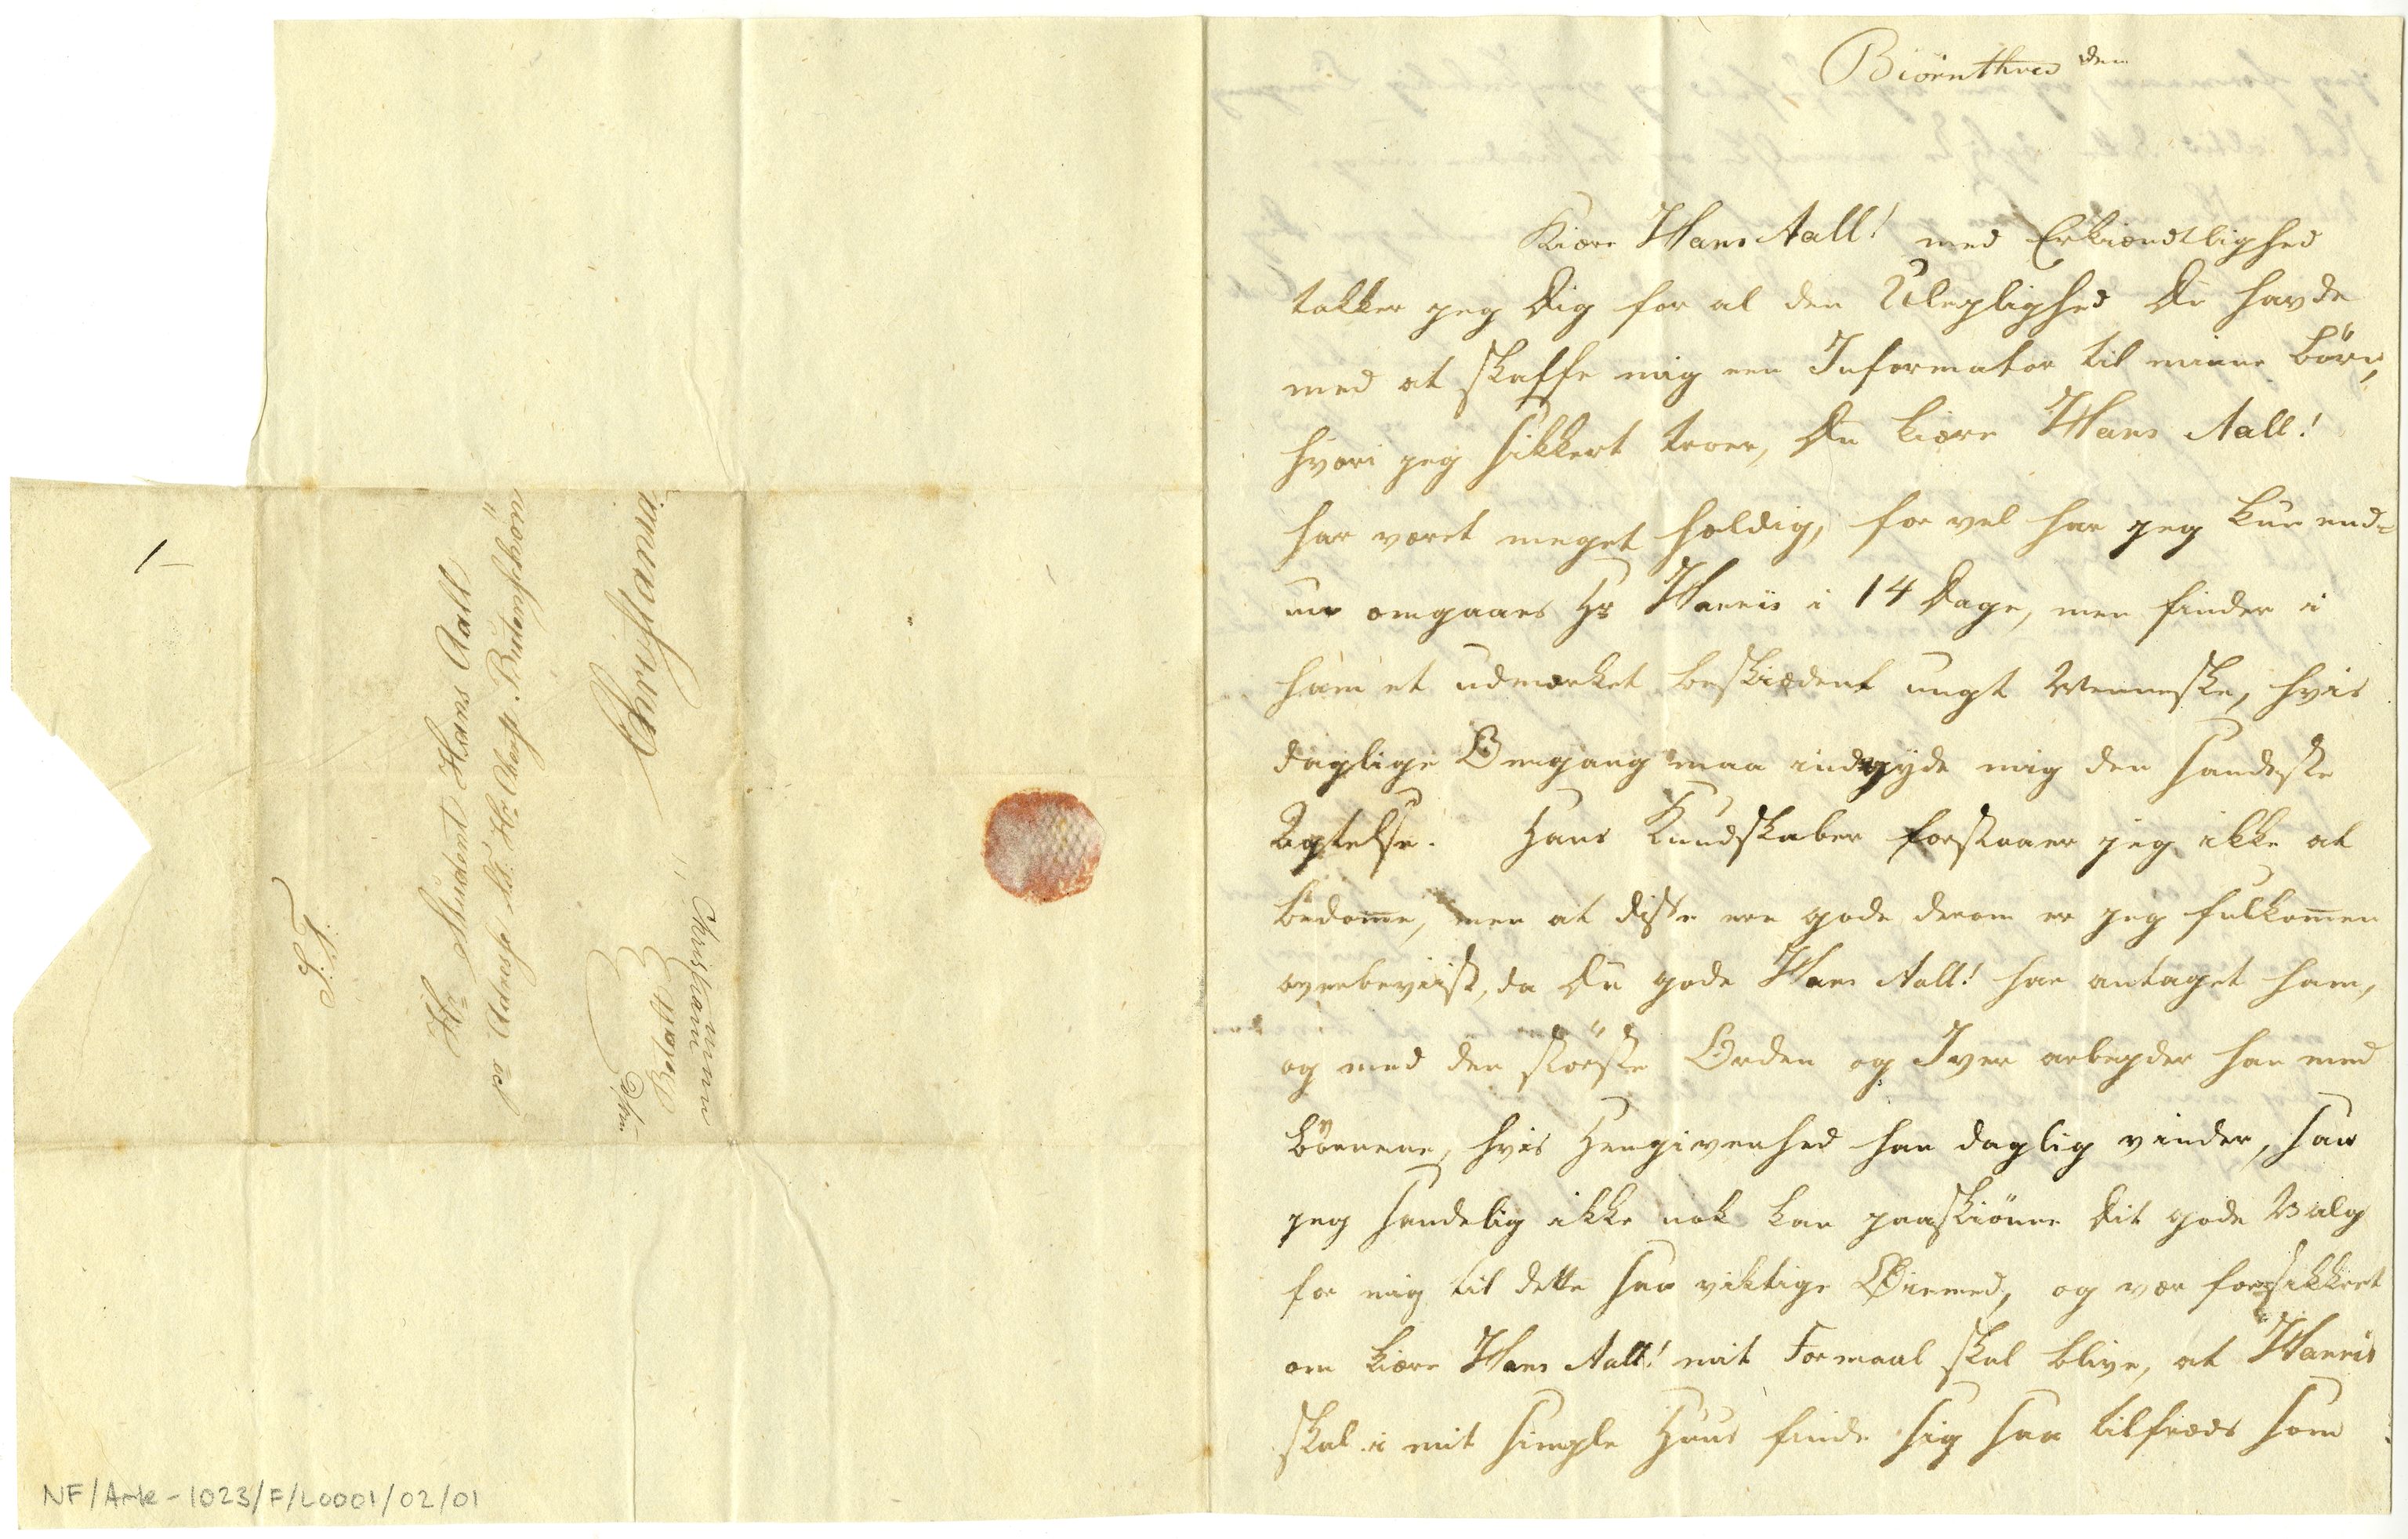 Biörnthved den
Kiære Hans Aall! med Erkiendtlighed
takker jeg Dig for al den Uleylighed Du havde
med at skaffe mig een Informator til minne börn,
hvori jeg sikkert troer, Du kiære Hans Aall!
har været meget heldig, for vel har jeg kun end-
nu omgaaes Hr Harris i 14 Dage, men finder i
ham et udmærket beskiedent ungt Menneske, hvis
daglige Omgang maa indgyde mig den sandeste
Agtelse. Hans Kundskaber forstaaer jeg ikke at
bedøme, men at disse ere gode derom er jeg fulkomen
overbeviist, da Du gode Hans Aall! har antaget ham,
og med den störste Orden og Iver arbeyder han med
börnene, hvis Hengivenhed han daglig vinder, saa
jeg sandelig ikke nok kan paaskiönne Dit gode Valg
for mig til dette saa viktige Øiemed, og vær forsikkret
om kiære Hans Aall! mit Formaal skal blive, at Harris
skal i mit simple Huus finde sig saa tilfreds som
S. T.
Hr Student Hans Aall
pr Adresse Hr. Butenschön
Christiania
Betalt
1
NF/Ark-1023/F/L0001/02/01